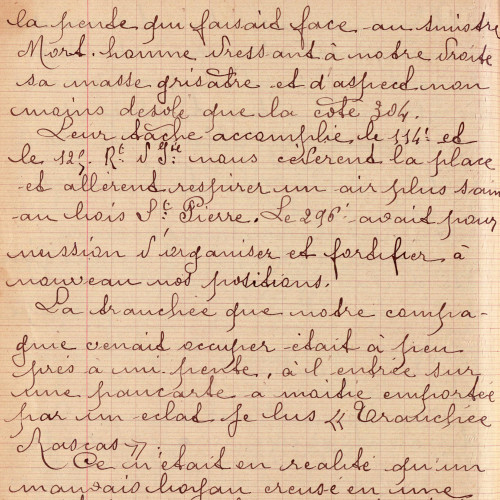 la pente qui faisait face au sinistre
Mort-homme dressant à notre droite
sa masse grisâtre et d'aspect non
moins desolé que la côte 304.
Leur tâche accomplie le 114e et
le 125e Rt d'Ie nous cederent la place
et allèrent respirer un air plus sain
au bois St Pierre. Le 296e avait pour
mission d'organiser et fortifier à
nouveau nos positions.
La tranchée que notre compa-
gnie venait occuper était à peu
près à mi pente, à l'entrée sur
une pancarte à moitié emportée
par un eclat je lus « Tranchée
Rascas ».
Ce n'était en realité qu'un
mauvais boyau creusé en une